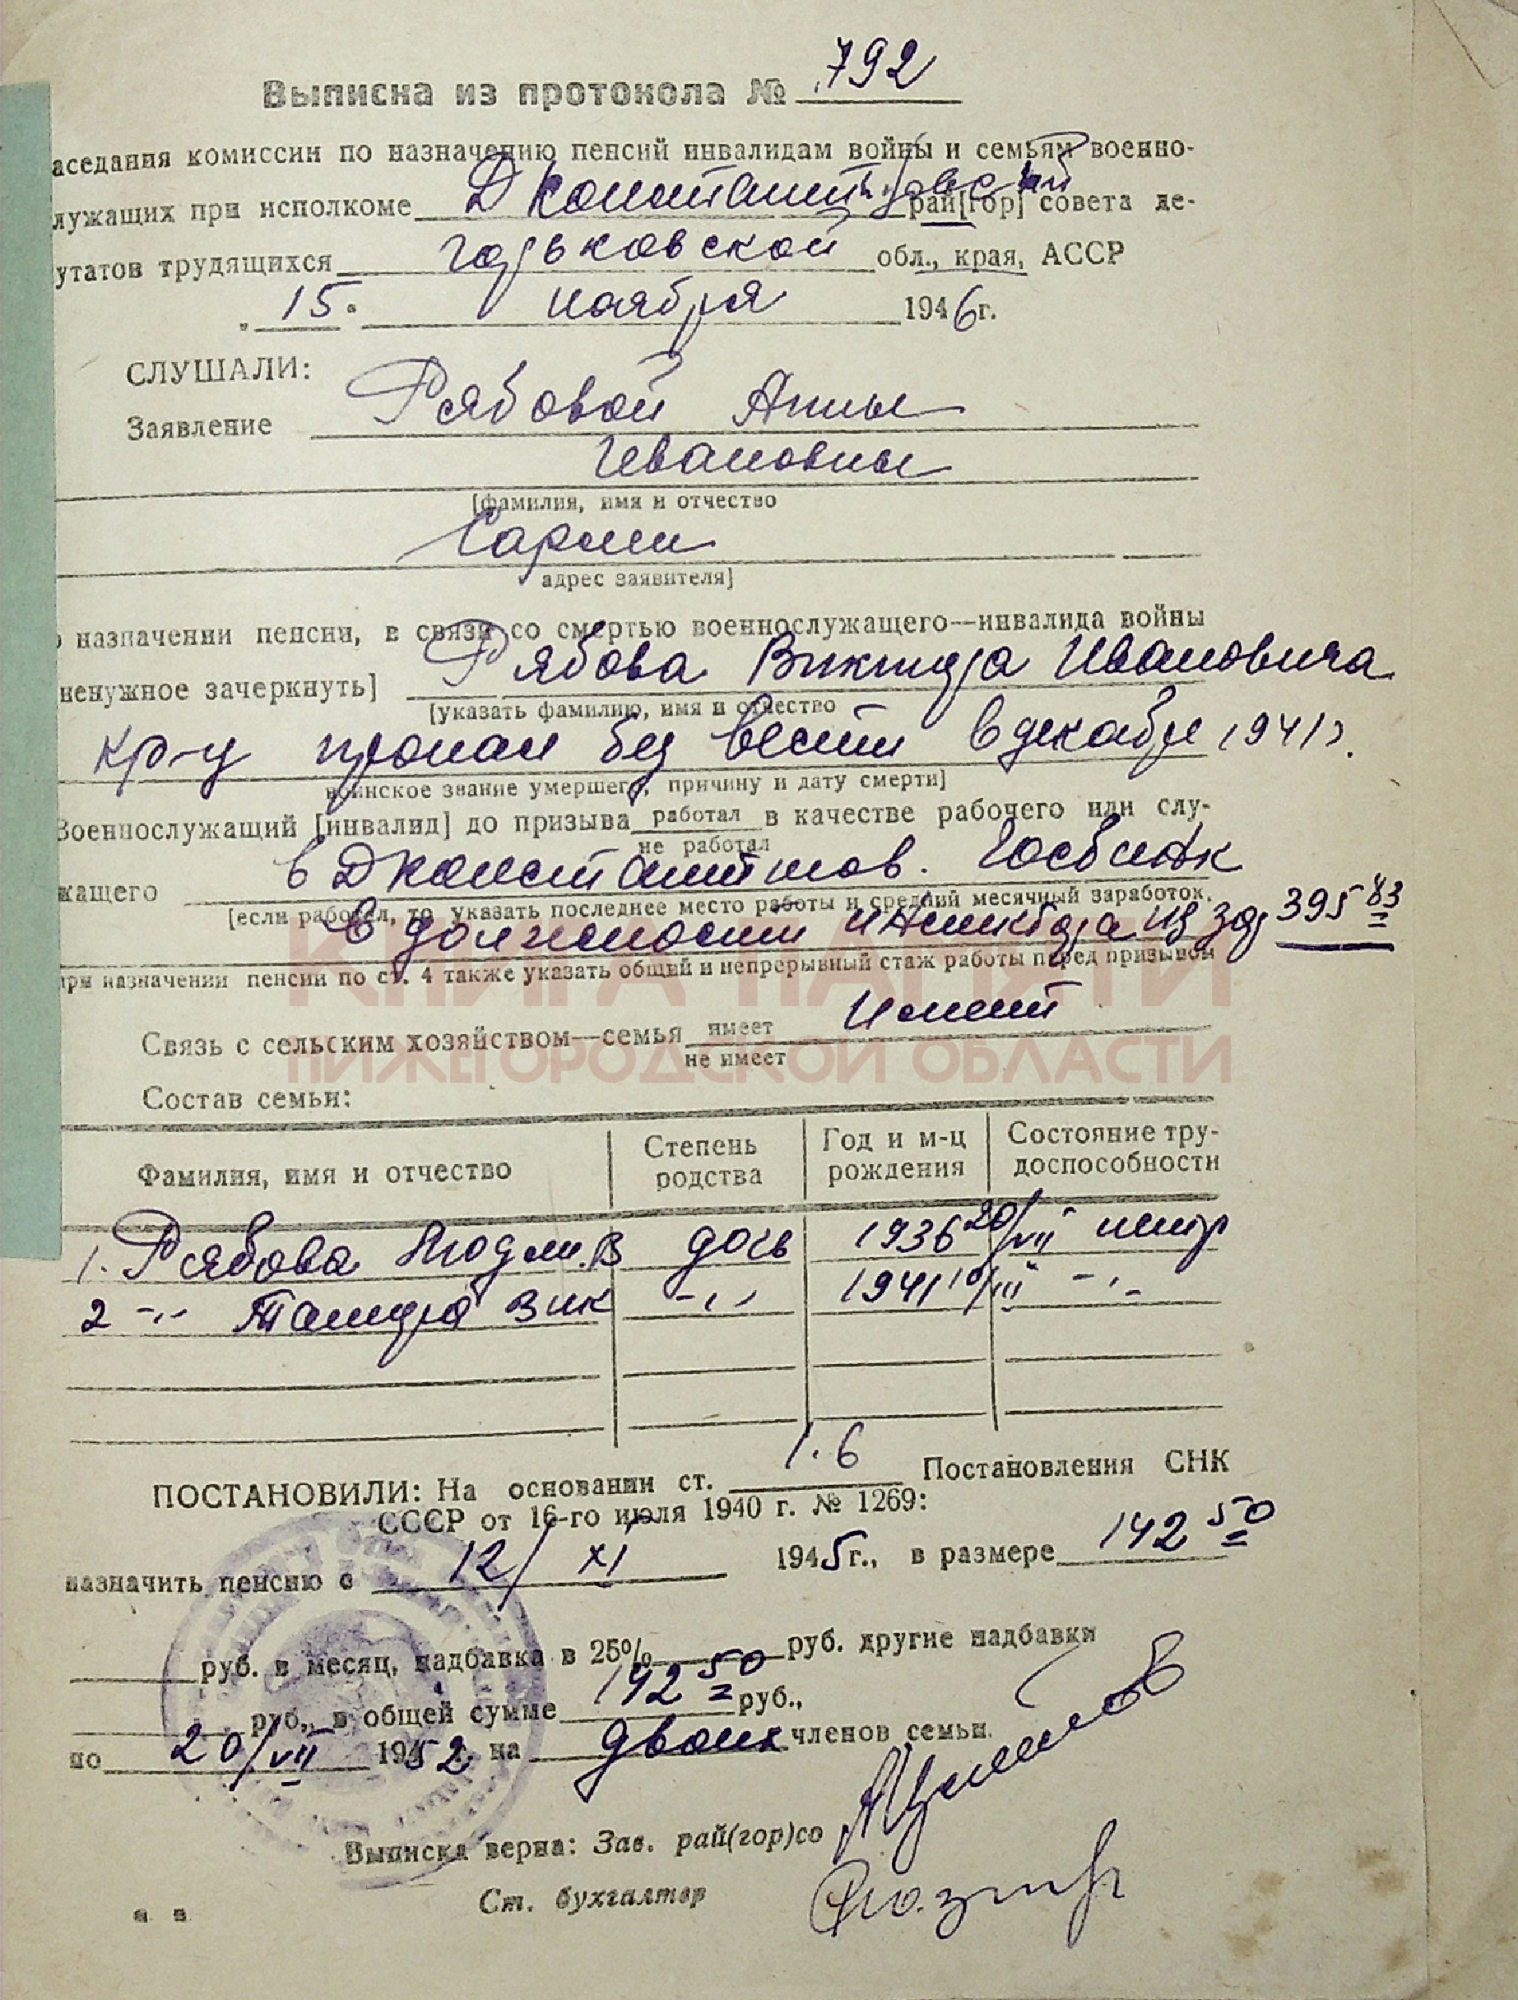 Выписка из протокола № 792
аседания комиссии по назначению пенсий инвалидам войны и семьям военно-
лужащих при исполкоме Д Константиновский рай[гор] совета де-
утатов трудящихся горьковской обл., края, АССР
„ 15 " ноября 1946 г.
СЛУШАЛИ:
Заявление Рябовой Анны
Ивановны
[фамилия, имя и отчество
Сарлеи
адрес заявителя]
о назначении пенсии, в связи со смертью военнослужащего—инвалида войны
ненужное зачеркнуть] Рябова Виктора Ивановича
[указать фамилию, имя и отчество
кр-ц пропал без вести в декабре 1941 г.
воинское звание умершего, причину и дату смерти]
Военнослужащий [инвалид] до призыва работал в качестве рабочего или слу-
не работал
жащего в Д Константинов. Госбанк
[если работал, то указать последнее место работы и средний месячный заработок,
в должности из зар 395 83
при назначении пенсии по ст. 4 также указать общий и непрерывный стаж работы перед призывом
КНИГА ПАМЯТИ
НИЖЕГОРОДСКОЙ ОБЛАСТИ
Связь с сельским хозяйством—семья имеет Имеет
не имеет
Состав семьи:
Фамилия, имя и отчество Степень родства Год и м-ц рождения Состояние тру-доспособности
1. Рябова Людм. В дочь 1936 20/VII нетр
2 -"- Тамара Вик -"- 1941 10/III -"-
ПОСТАНОВИЛИ: На основании ст. 1.6 Постановления СНК
СССР от 16-го июля 1940 г. № 1269:
назначить пенсию с 12/XI 1945 г., в размере 142 50
руб. в месяц, надбавка в 25% руб. другие надбавки
руб., в общей сумме 142 50 руб.,
по 20/VII 1952 г. на двоих членов семьи.
Выписка верна: Зав. рай(гор)со
Ст. бухгалтер